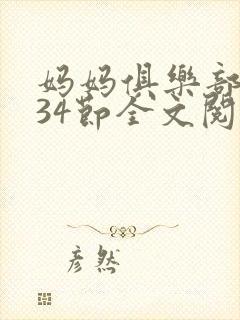 妈妈俱乐部
34節全文閱
彦然